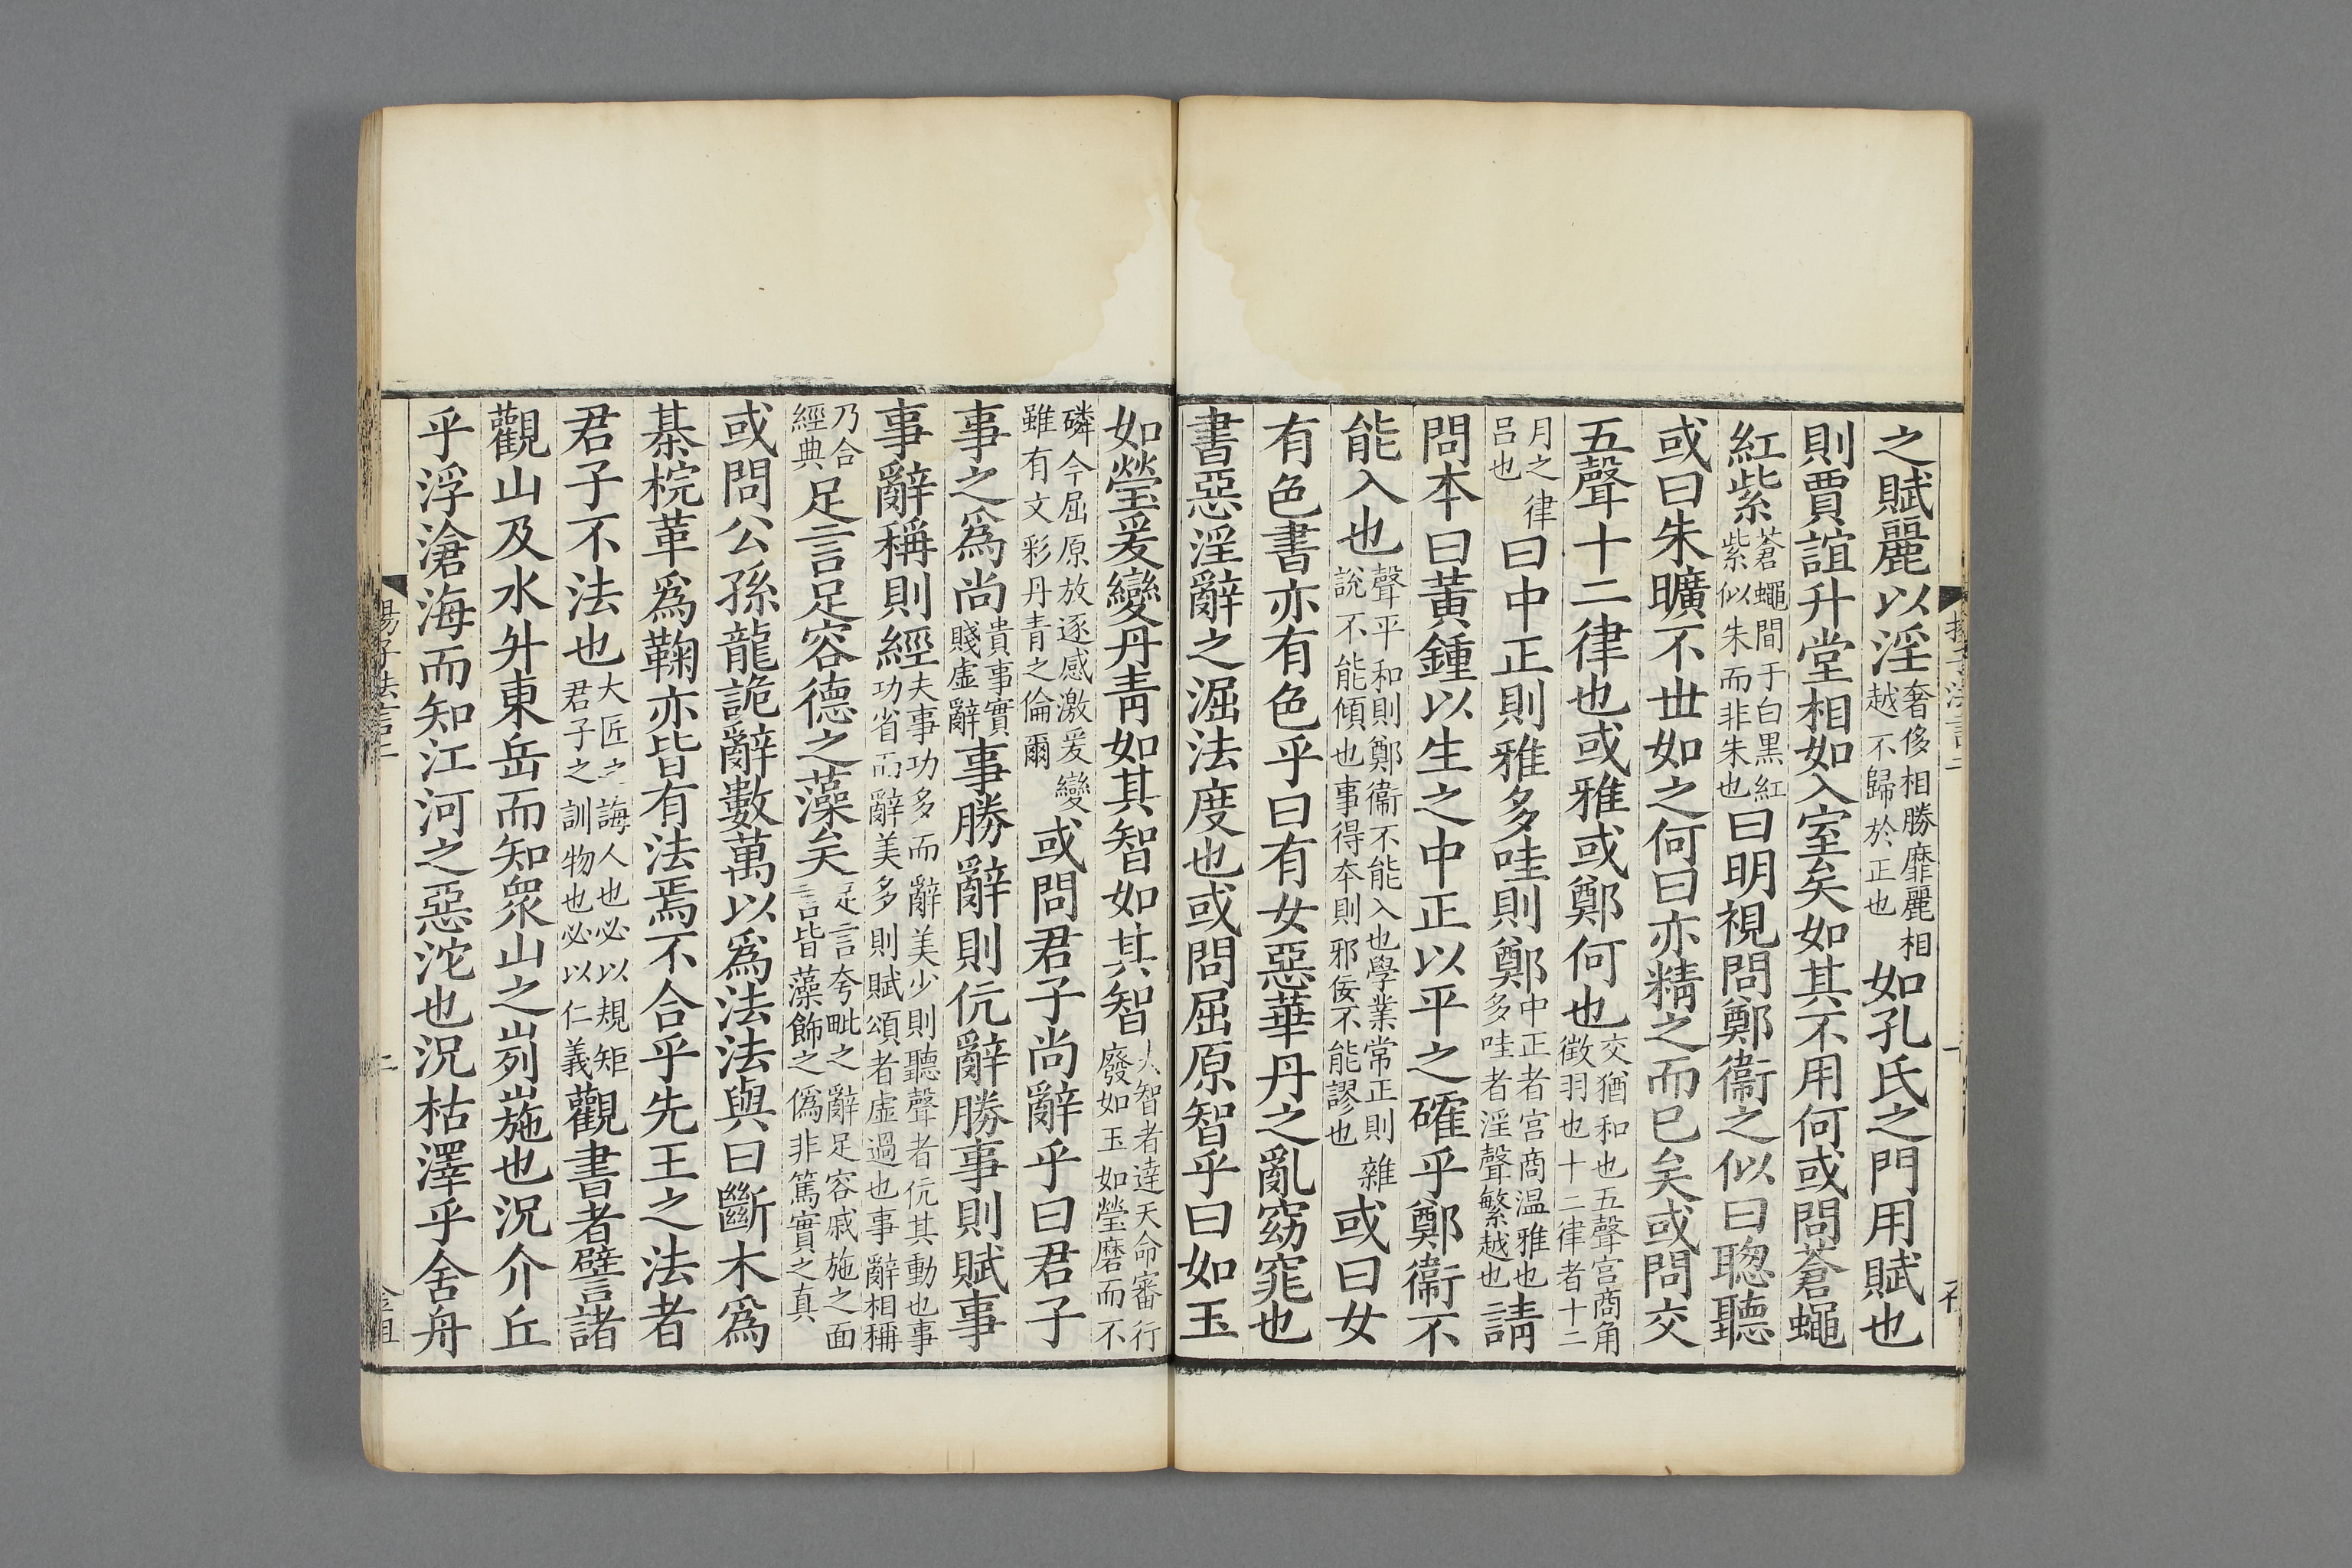 之賦麗以淫奢侈相勝靡麗相越不歸於正也如孔氏之門用賦也
則賈誼升堂相如入室矣如其不用何或問蒼蠅
紅紫蒼蠅間于白黑紅紫似朱而非朱也曰明視問鄭衞之似曰聦聽
或曰朱曠不丗如之何曰亦精之而已矣或問交
五聲十二律也或雅或鄭何也交猶和也五聲宫商角徵羽也十二律者十二
月之律吕也曰中正則雅多哇則鄭中正者宫商温雅也多哇者淫聲繁越也請
問本曰黃鍾以生之中正以平之確乎鄭衞不
能入也聲平和則鄭衞不能入也學業常正則雜說不能傾也事得本則邪佞不能謬也或曰女
有色書亦有色乎曰有女惡華丹之亂窈窕也
書惡淫辭之淈法度也或問屈原智乎曰如玉
如瑩爰變丹青如其智如其智大智者達天命審行廢如玉如瑩磨而不
磷今屈原放逐感激爰變雖有文彩丹青之倫爾或問君子尚辭乎曰君子
事之爲尚貴事實賤虛辭事勝辭則伉辭勝事則賦事
事辭稱則經夫事功多而辭美少則聽聲者伉其動也事功省而辭美多則賦頌者虛過也事辭相稱
乃合經典足言足容德之藻矣足言夸毗之辭足容戚施之面言皆藻飾之僞非篤實之真
或問公孫龍詭辭數萬以爲法法與曰斷木爲
棊梡革爲鞠亦皆有法焉不合乎先王之法者
君子不法也大匠之誨人也必以規矩君子之訓物也必以仁義觀書者譬諸
觀山及水升東岳而知衆山之峛崺也況介丘
乎浮滄海而知江河之惡沱也況枯澤乎舍舟
揚子法言二
二